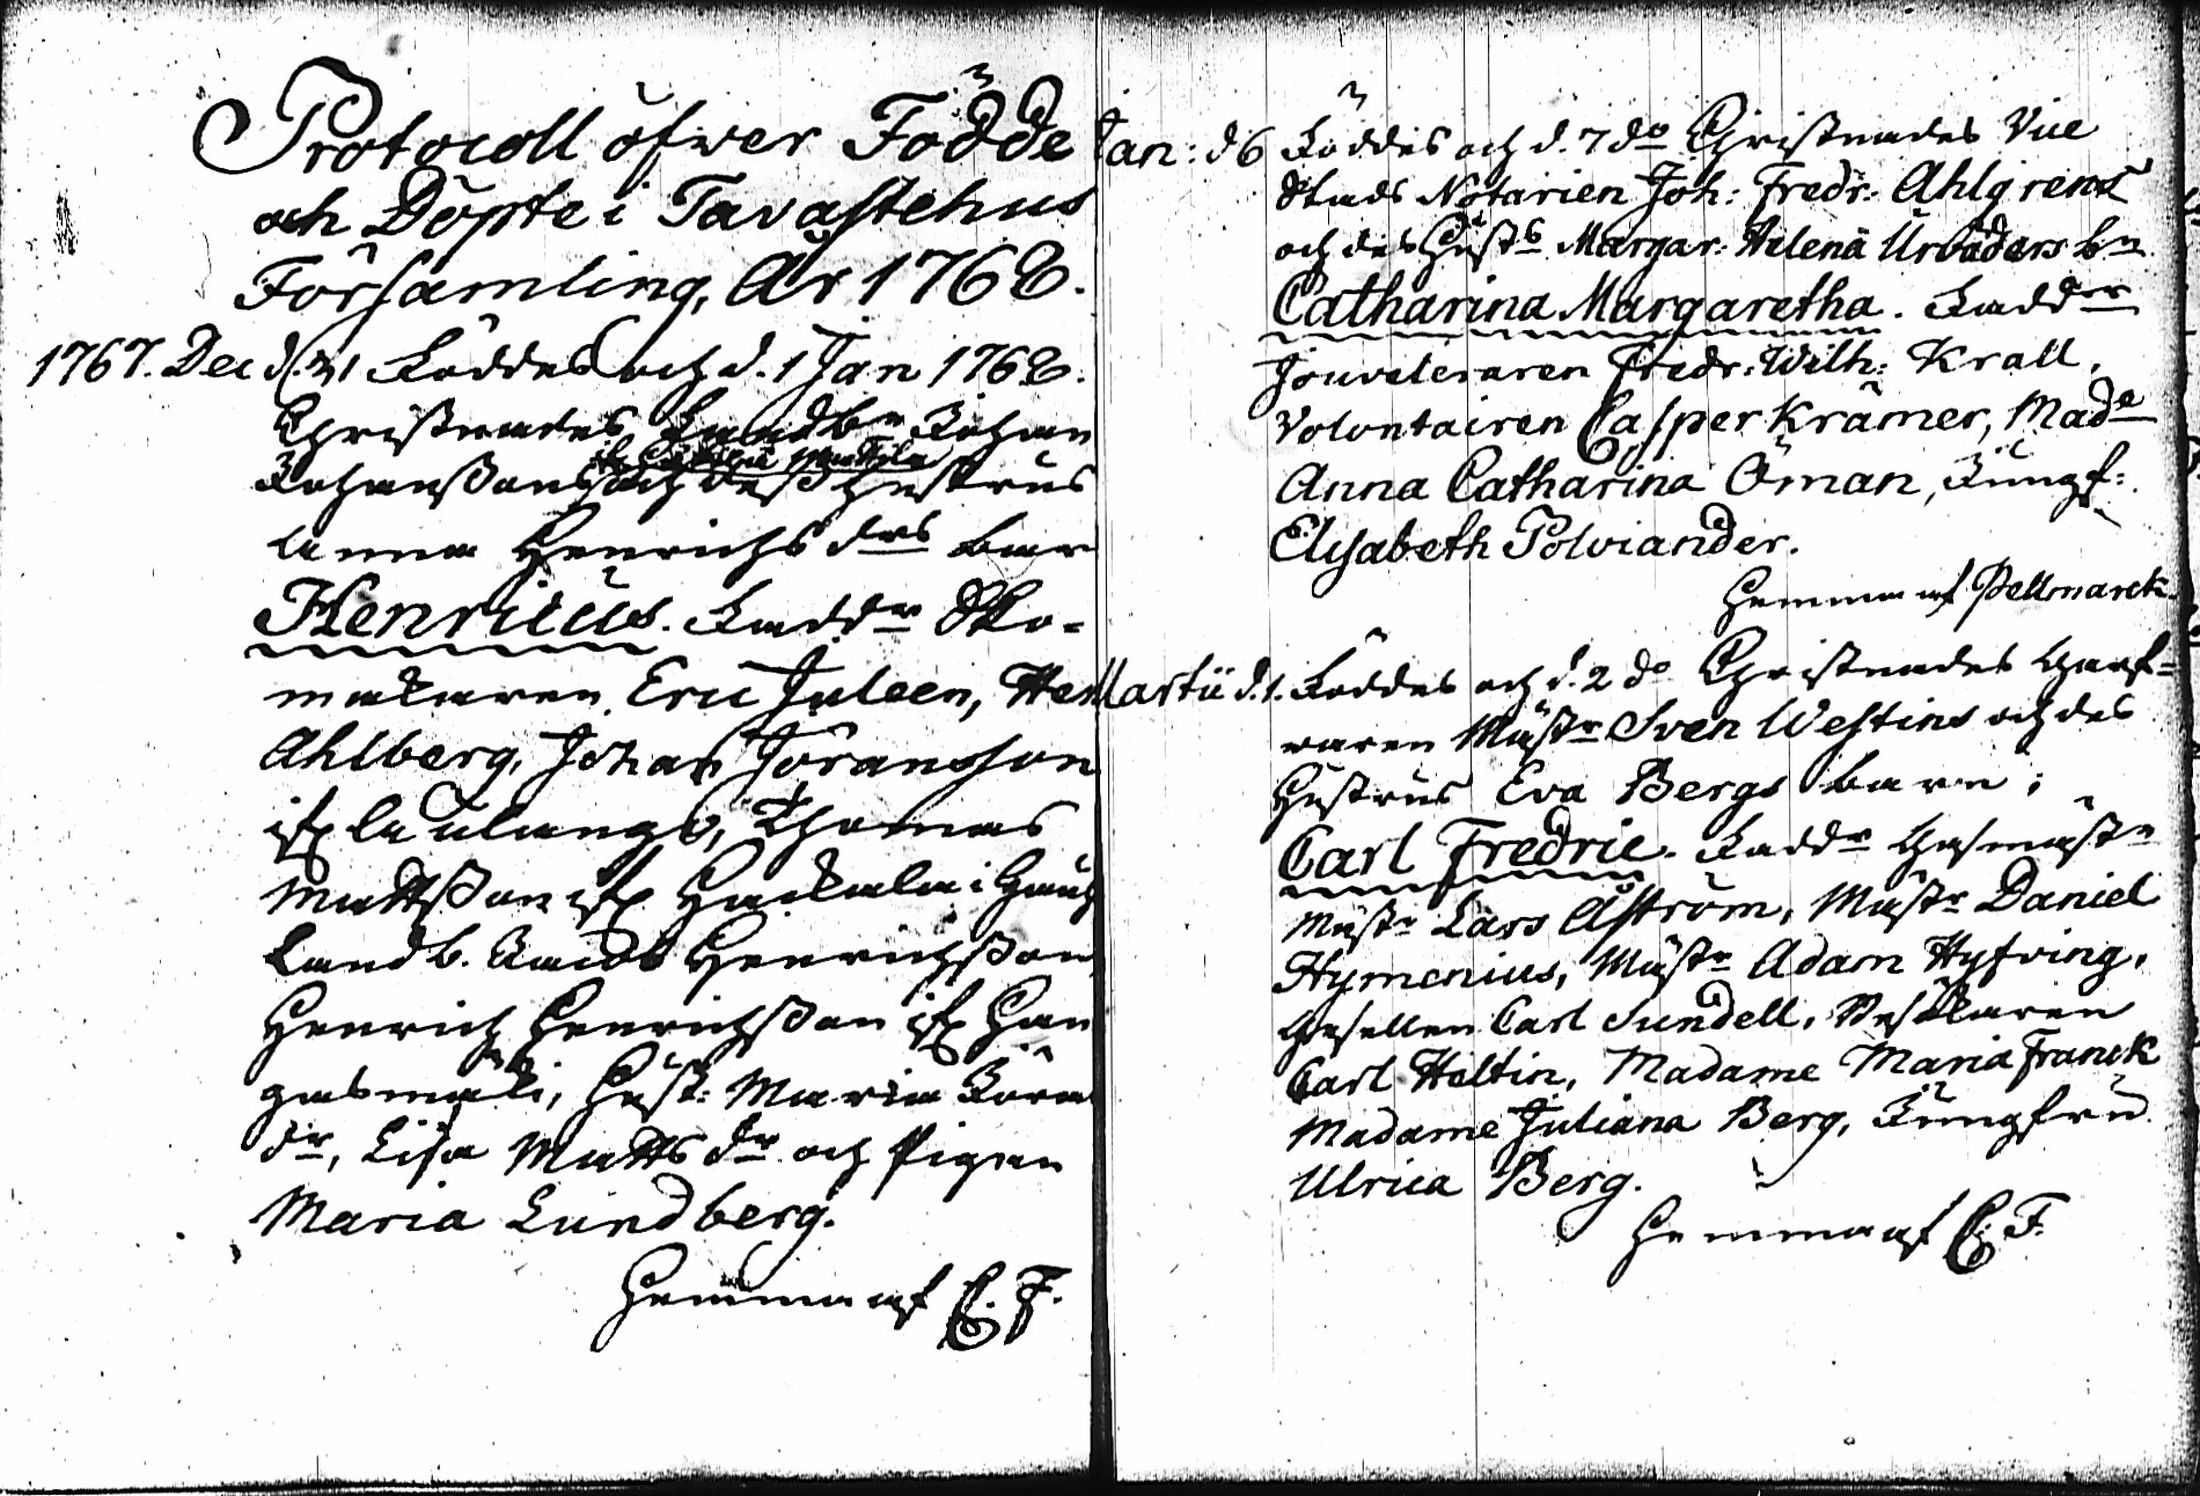 Protocoll öfwer Födde
och Döpte i Tavastehus
Församling, År 1768.
1767. Dec d. 31 Föddes och d. 1 Jan 1768.
Christnades Landb:n Johan
Johanssons och dess hustrus
Anna Henrichs drs barn
Henricus. Faddr Sko-
makaren Eric Juleen,
Ahlberg, Johan Göransson
ifr. Thomas
Mattsson ifr.
Landb. Jacob Henrichsson
Henrich Henrichsson ifr. Han
gasmäki, Hust: Maria
dr, Lisa Matts dr och Pigan
Maria Lundberg.
Hemma af C. F.
Jan: d 6 Föddes och d. 7 do Christnades Vice
Stads Notarien Joh: Fredr: Ahlgrens
och des Hust:s Margar: Helena Urvaders b:n
Catharina Margaretha. Faddr
Jouveleraren Fredr: Wilh: Krall,
Volontairen Casper Krämer, Made
Anna Catharina Öman, Jungf:
Elisabeth Polviander.
Hemma af Pellmarck.
Martii d. 1. Föddes och d. 2 do Christnades Garf-
waren Mäst:r Sven Westins och des
Hustrus Eva Bergs barn:
Carl Fredric. Faddr
Mäst:r Lars Åström, Mäst:r Daniel
Hymenius, Mäst:r Adam Hyfving,
Gesellen Carl Sundell,
Carl Holtin, Madame Maria Franck
Madame Juliana Berg, Jungfru
Ulrica Berg.
Hemma af C. F.